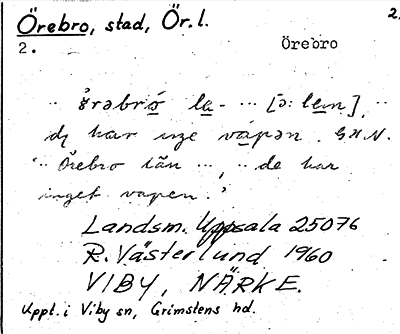 Örebro, stad, Ör. l. 2.
2. Örebro
·· örəbro̲ la̲- ··· [ɔ: le̲n], ··
har inge va̲pən. GHN.
'·· Örebro län ···, ·· de har
inget vapen.'
Landsm. Uppsala 25076
R. Västerlund 1960
VIBY, NÄRKE.
Uppt. i Viby sn, Grimstens hd.